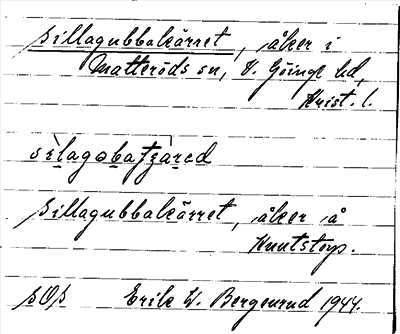 Sillagubbakärret, åker i
Matteröds sn, V. Göinge hd,
Krist. l.
Sillagubbakärret, åker å
Knutstorp.
Erik W. Bergenrud 1944.